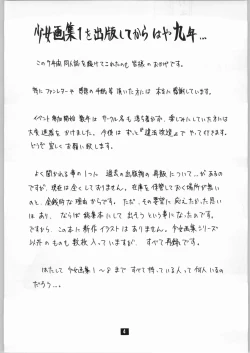 少女画集1を出版してからはや九年...
この9年間同人誌を続けてこれたのも 皆様のおかげです。
特に ファンレターや 感想の手紙等 頂いた方には 本当に感謝しています。
イベント参加開始 数年は サークル名も違う者が多く、楽しみにしていた方には
大変迷惑を かけました。今後は ずっと"違法改造"で やって行きます。
どうぞ 宜しくお願い致します。
よく聞かれる事の1つに 過去の出版物の再販 について...があるの
ですが、現在は全くしておりません。在庫を保管しておく場所が無い
のと、金銭的な理由からです。ただ、その要望に 応えたかった思い
はあり、ならば 総集本にして 出そうという事になったのです。
ですから、この本に新作イラストはありません。少女画集シリーズ
以外のものも数枚入っていますが、すべて再録です。
はたして 少女画集1〜8まで すべて持っている人って何人いるの
だろう...。
4